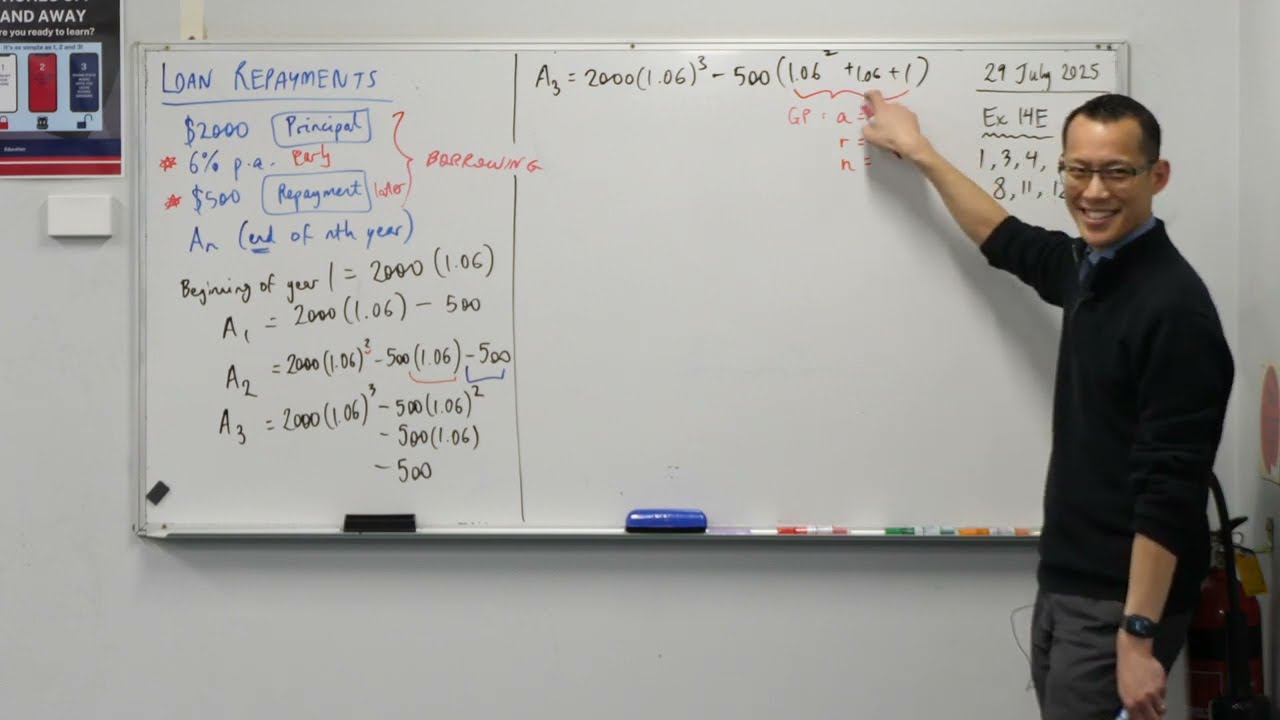 AND AWAY
re you ready to learn?
It's as simple as 1, 2 and 3!
1
2
3
Education
LOAN REPAYMENTS
$2000 Principal
* 6% p.a. Early
* $500 Repayment later
BORROWING
An (end of nth year)
Beginning of year 1 = 2000 (1.06)
A1 = 2000(1.06) - 500
A2 = 2000(1.06)² - 500(1.06) - 500
A3 = 2000(1.06)³ - 500(1.06)²
- 500(1.06)
- 500
A3 = 2000(1.06)³ - 500(1.06² + 1.06 + 1)
GP: a =
r =
n =
29 July 2025
Ex 14E
1, 3, 4,
8, 11, 12